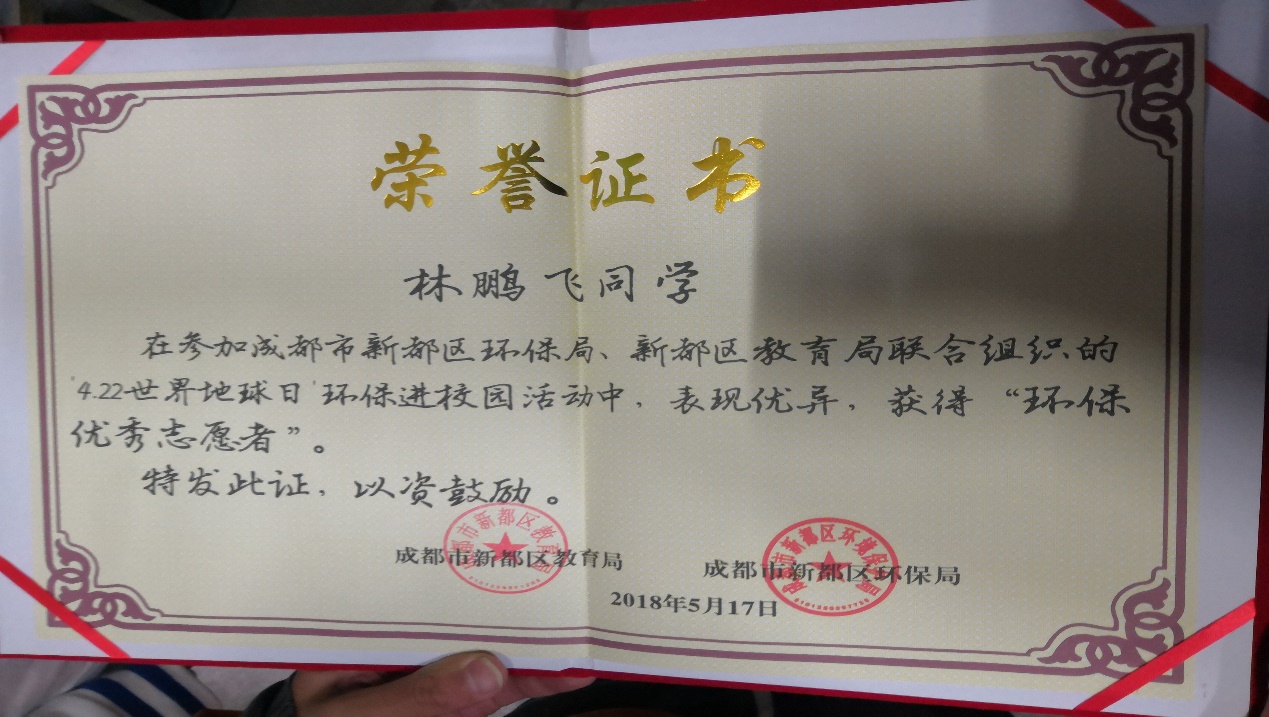 荣誉证书
林鹏飞同学
在参加成都市新都区环保局、新都区教育局联合组织的
“4.22世界地球日”环保进校园活动中，表现优异，获得“环保
优秀志愿者”。
特发此证，以资鼓励。
成都市新都区教育局 成都市新都区环保局
2018年5月17日